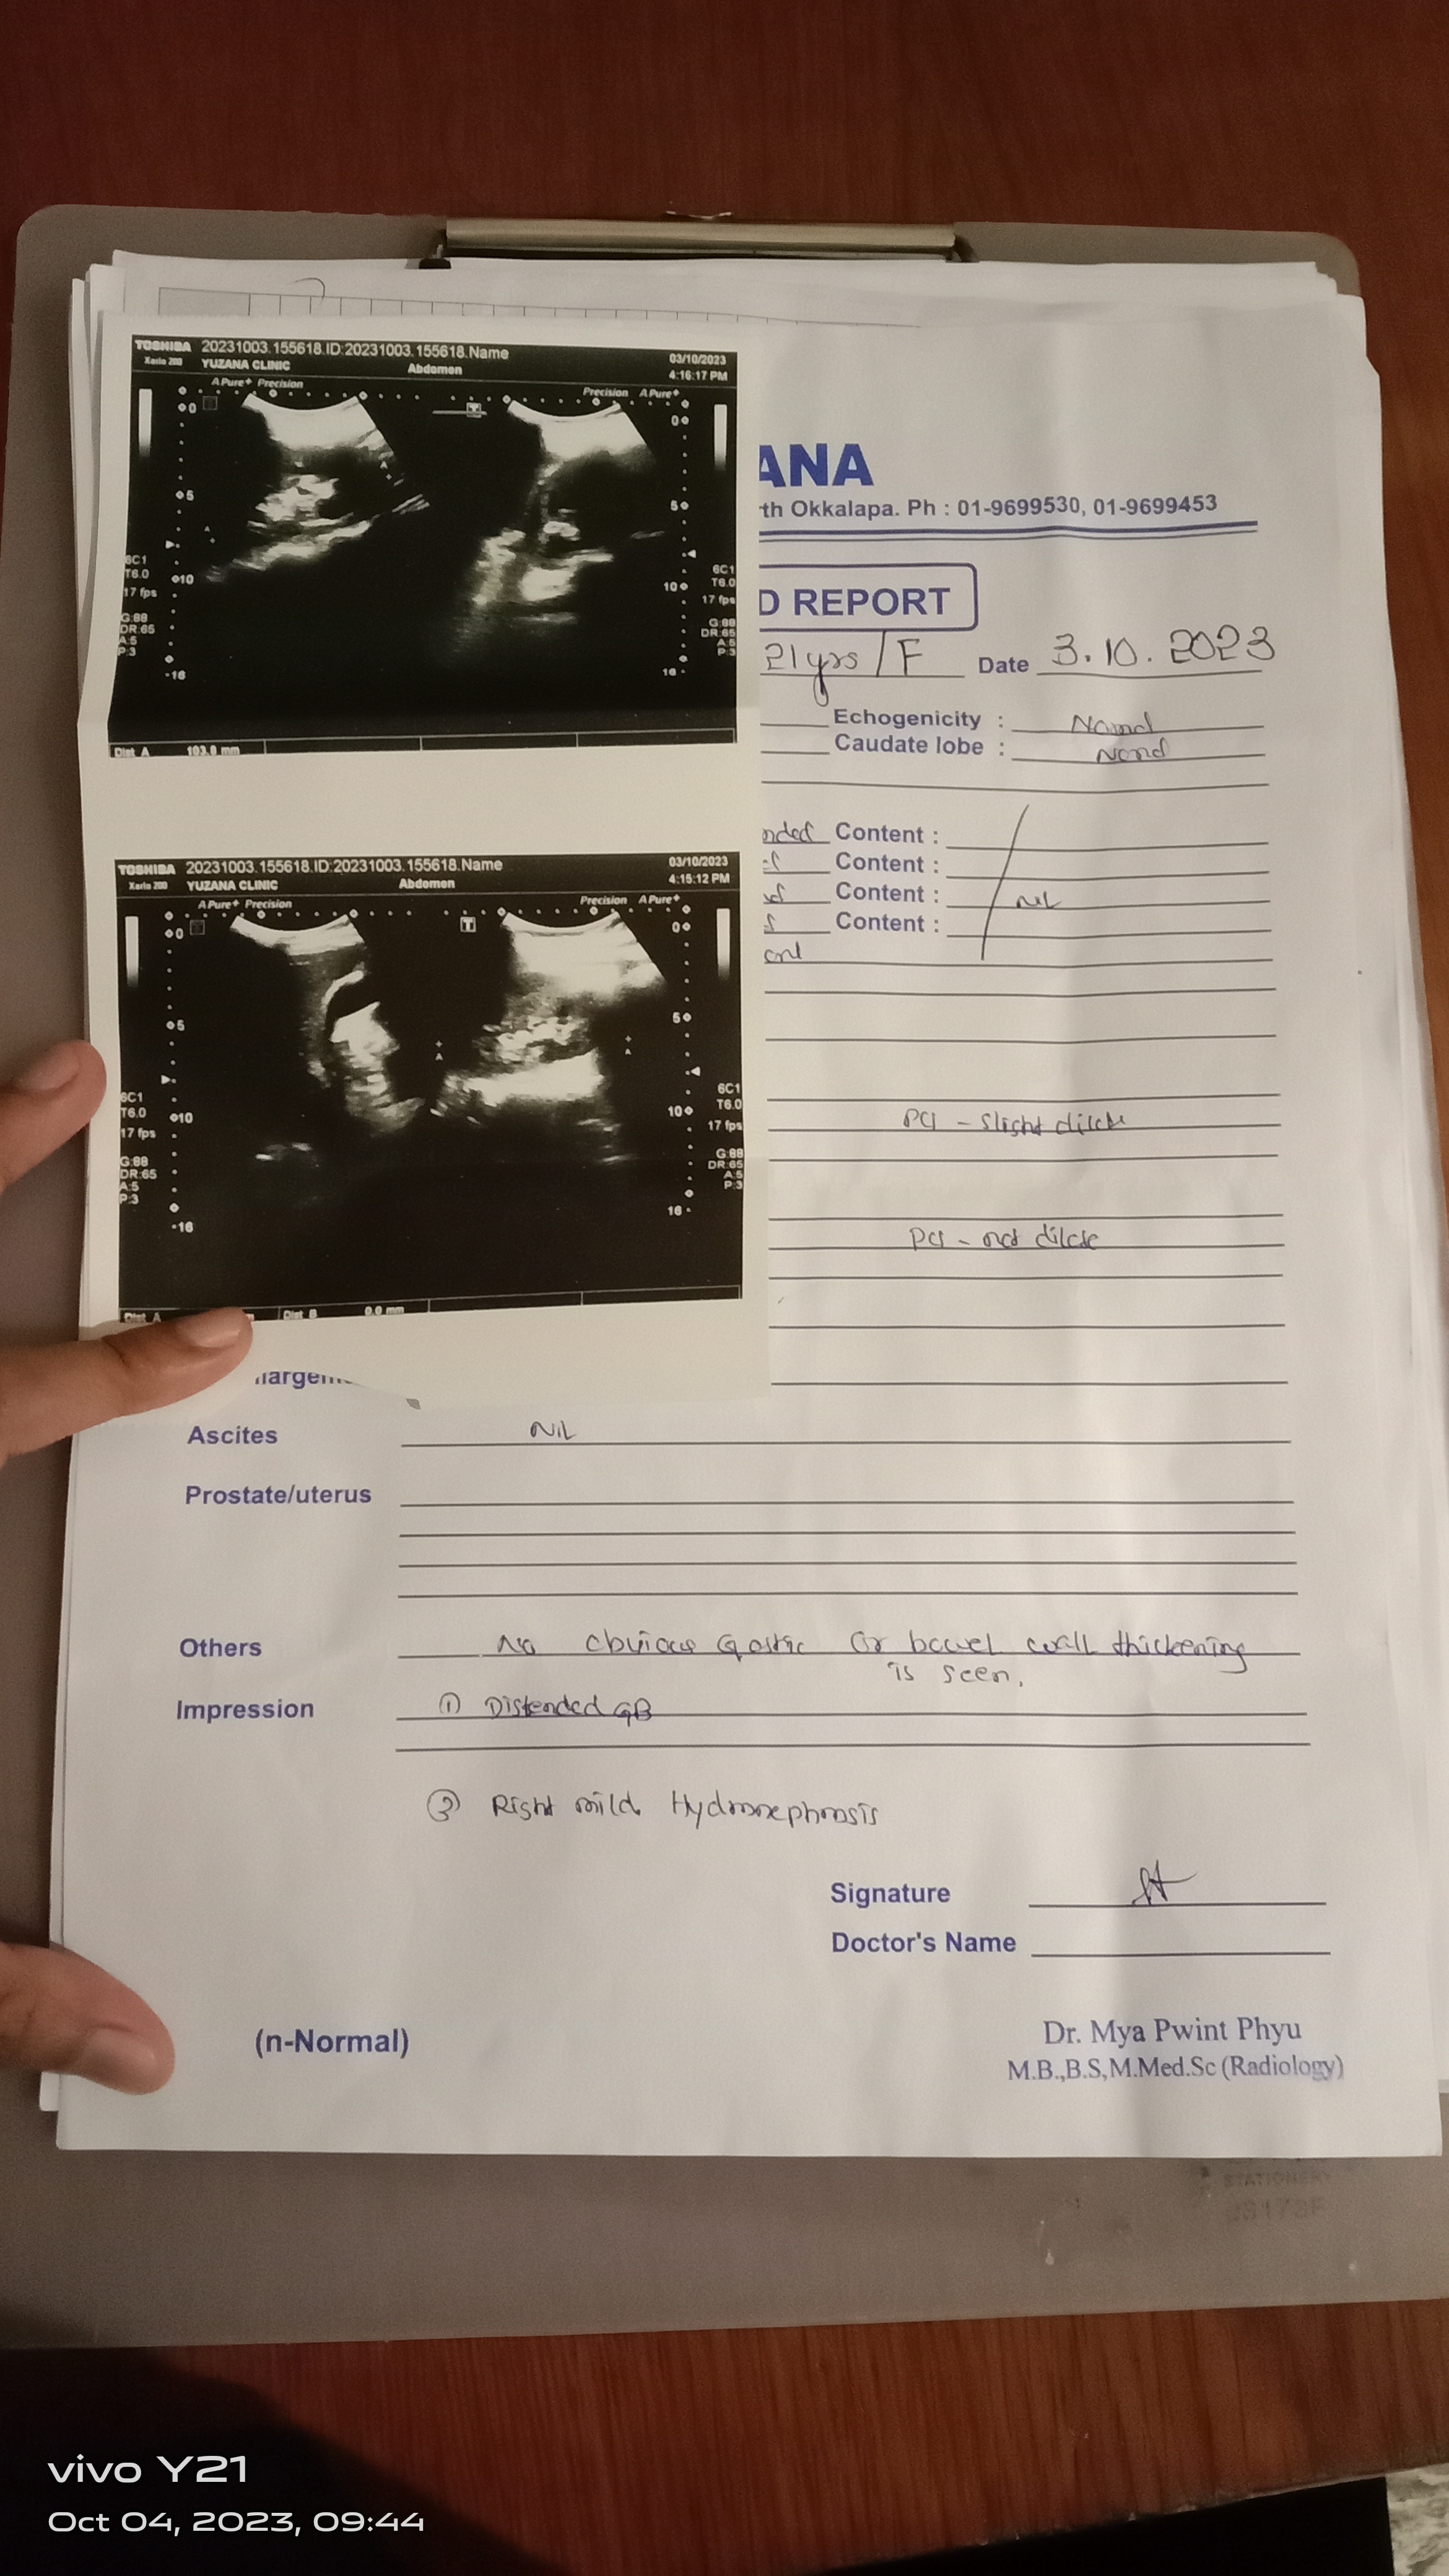 TOSHIBA 20231003.155618.ID:20231003.155618.Name 03/10/2023
Xario 200 YUZANA CLINIC Abdomen 4:16:17 PM
APure+ Precision Precision APure+
0 0
5 5
10 10
16 16
6C1 6C1
T6.0 T6.0
17 fps 17 fps
G:88 G:88
DR:65 DR:65
A:5 A:5
P:3 P:3
Dist A 103.8 mm
TOSHIBA 20231003.155618.ID:20231003.155618.Name 03/10/2023
Xario 200 YUZANA CLINIC Abdomen 4:15:12 PM
APure+ Precision Precision APure+
0 0
5 5
10 10
16 16
6C1 6C1
T6.0 T6.0
17 fps 17 fps
G:88 G:88
DR:65 DR:65
A:5 A:5
P:3 P:3
Dist A Dist B 0.0 mm
ANA
rth Okkalapa. Ph : 01-9699530, 01-9699453
D REPORT
21yrs/F Date 3.10.2023
Echogenicity : Normal
Caudate lobe : Normal
nded Content :
Content :
Content : NIL
Content :
PCS - slight dilate
PCS - not dilate
Ascites NIL
Prostate/uterus
Others No obvious Gastric or bowel wall thickening
is seen.
Impression ① Distended GB
② Right mild Hydronephrosis
Signature
Doctor's Name
(n-Normal) Dr. Mya Pwint Phyu
M.B.,B.S,M.Med.Sc (Radiology)
vivo Y21
Oct 04, 2023, 09:44